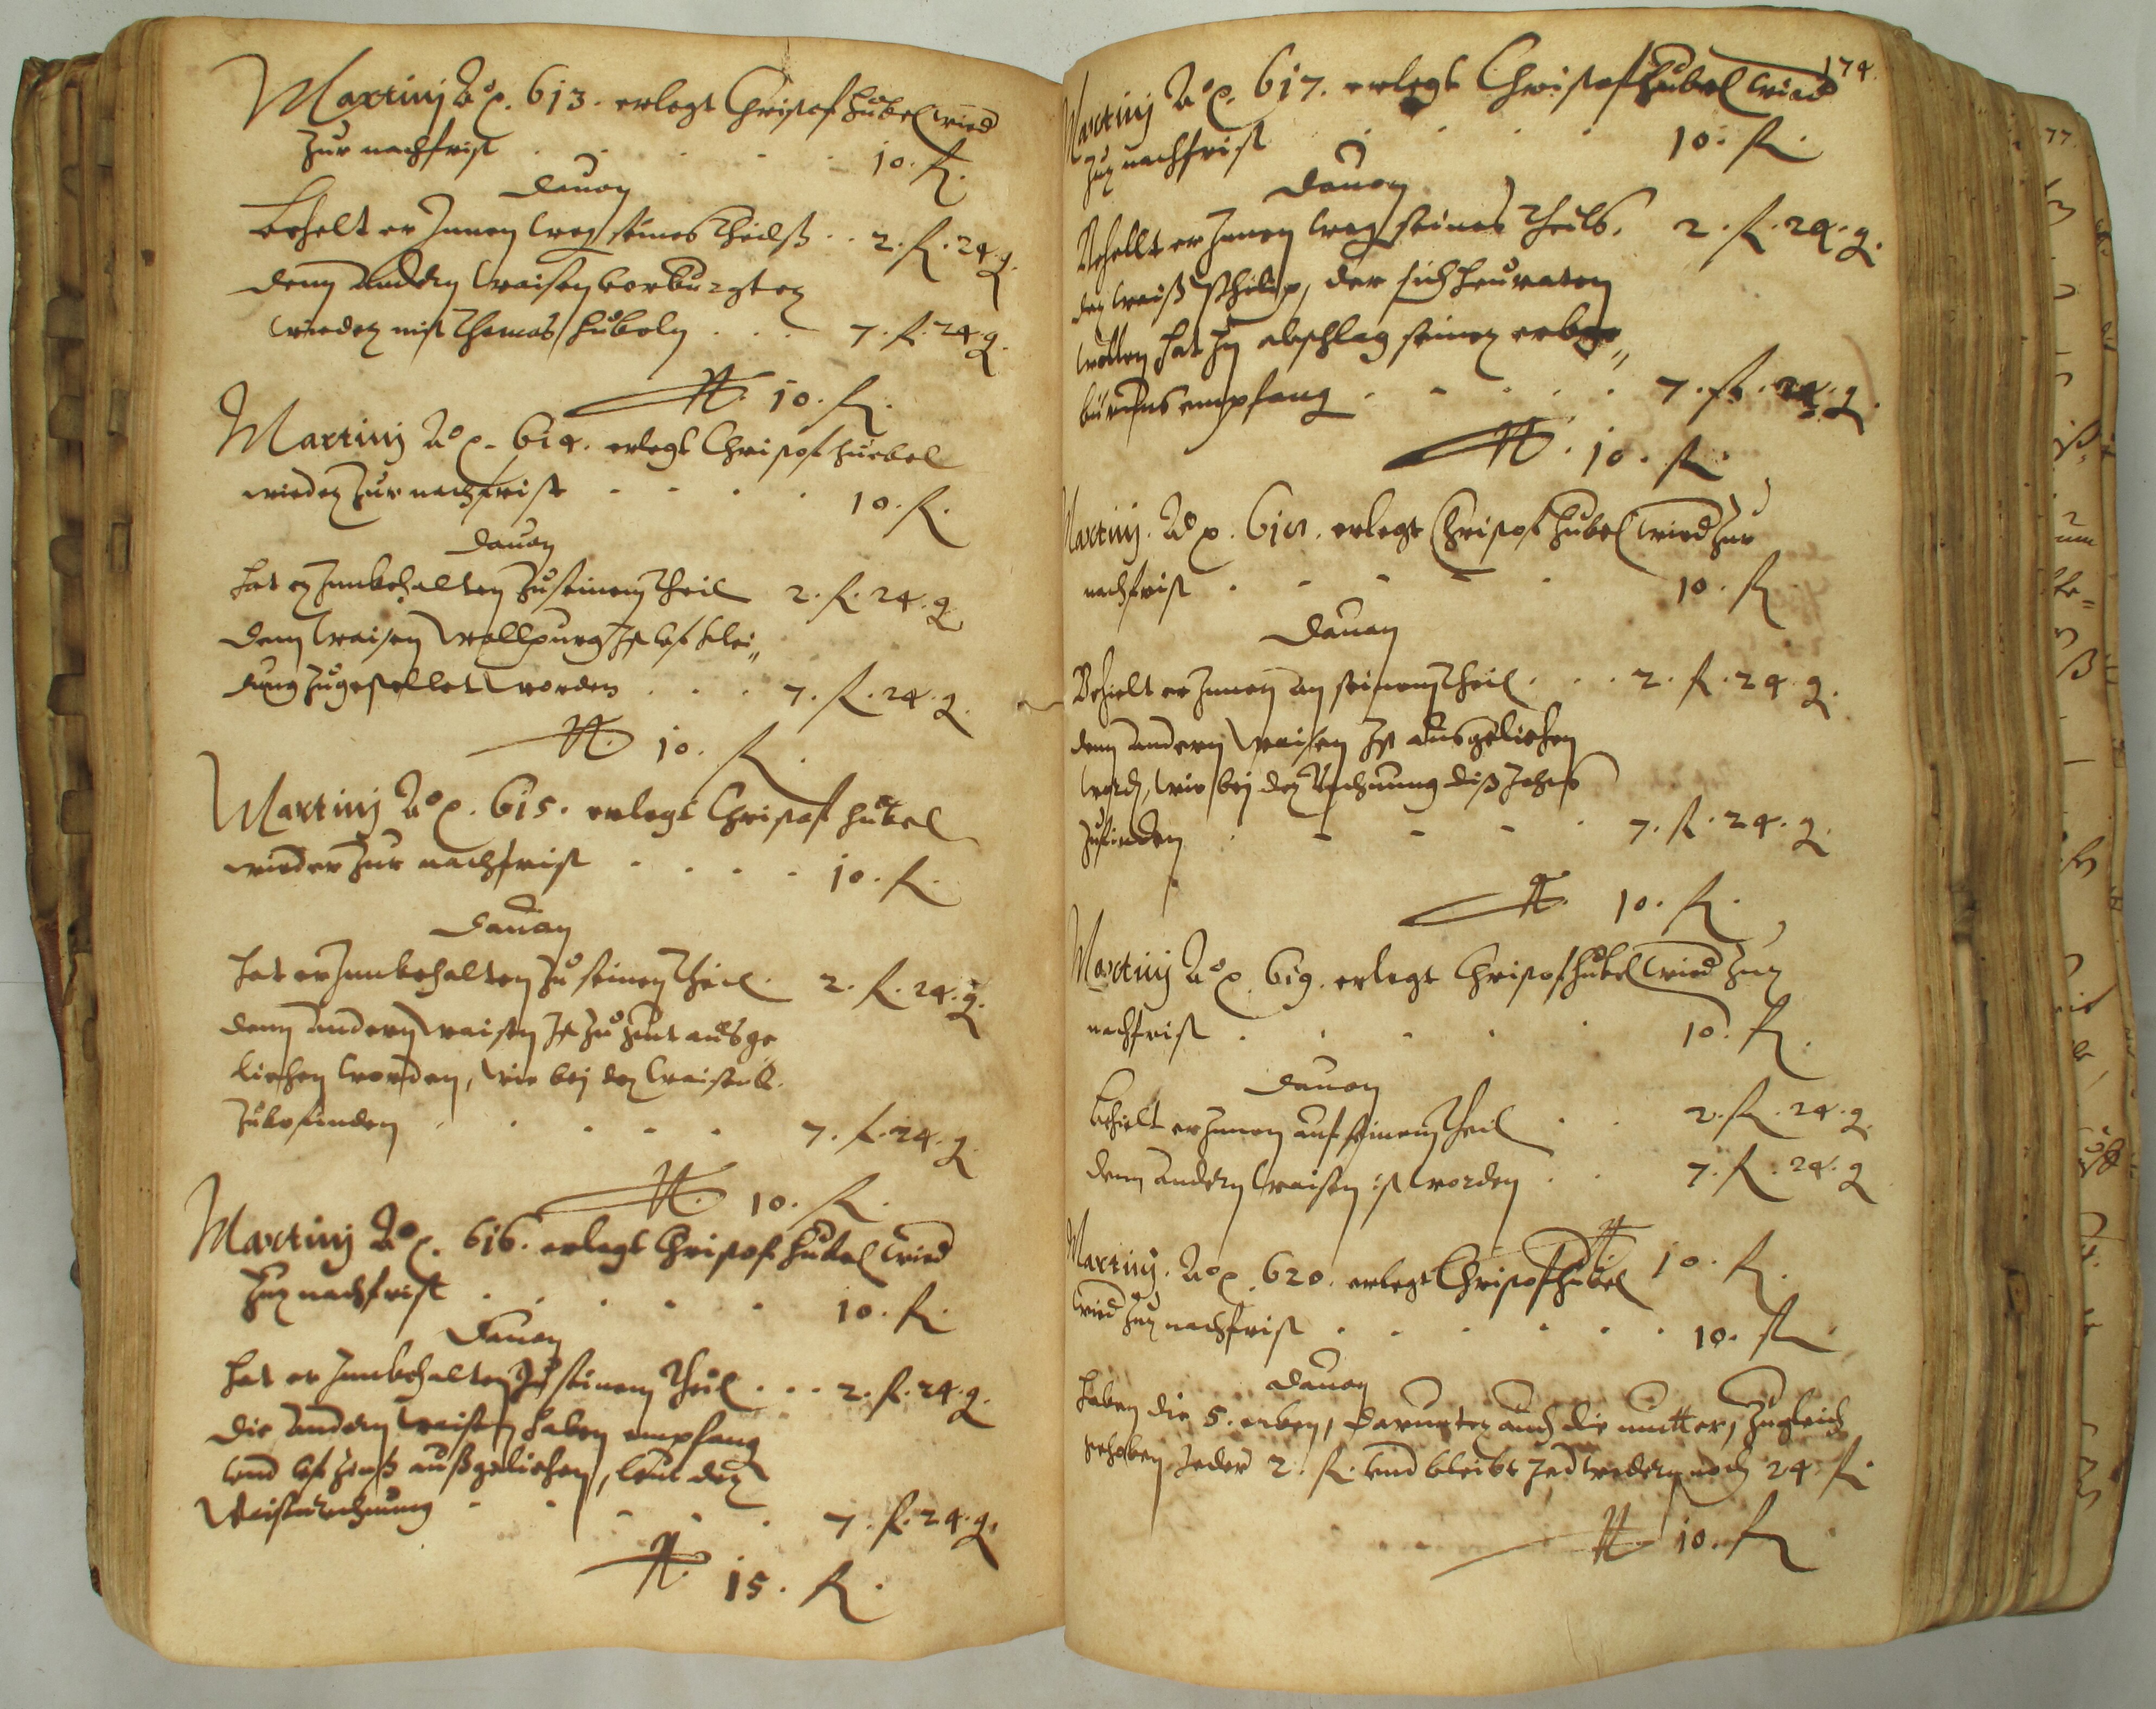 Martinj Aᵒ p. 613. erlegt Christof Hübel wied
zur nachfrist . . . . . 10. fl.
Dauon
Behelt er Innen weg seines Theilß . . 2. fl. 24. q.
denn andern Waisen verbürgter
wieder mit Thomas Hübeln . . . 7. fl. 24. q.
10. fl.
Martinj Aᵒ p. 614. erlegt Christof Hüebel
wieder zur nachfrist . . . . 10. fl.
Dauon
hat er Innbehalten zu seinem Theil 2. fl. 24. q.
denn Waisen Wallpurg Ist auf klei„
dung zugestellet worden . . . 7. fl. 24. q.
10. fl.
Martinj Aᵒ p. 615. erlegt Christof Hübel
wieder zur nachfrist . . . . 10. fl.
Dauon
hat er Innbehalten zu seinem Theil . 2. fl. 24. q.
denn andern Waisen Ist zu Zins ausge
liehen worden, wie bej der
zubefinden . . . . . 7. fl. 24. q.
10. fl.
Martinj Aᵒ p. 616. erlegt Christof Hübel wied
zur nachfrist . . . . . 10. fl.
Dauon
hat er Innbehalten zu seinem Theil . . . 2. fl. 24. q.
die andern Waisen haben empfang
vnd auf Zinß außgeliehen, laut der
Waisenrechnung . . . . . 7. fl. 24. q.
15. fl.
174.
Martinj Aᵒ p. 617. erlegt Christof Hübel wied
zur nachfrist . . . . . 10. fl.
Dauon
Behellt er Innen weg seines Theils. 2. fl. 24. q.
der Waiß Philip, der sich heuraten
wollen hat In abschlag seiner erbge„
bürnus empfang . . . . . 7. fl. 24. q.
10. fl.
Martinj. Aᵒ p. 618. erlegt Christof Hübel wied zur
nachfrist . . . . . 10. fl
Dauon
Behielt er Innen an seinem Theil . . . 2. fl. 24. q.
denn andern Waisen Ist ausgeliehen
word, wie bej der Rechnung diß Jahrs
zufinden . . . . . 7. fl. 24. q.
10. fl.
Martinj Aᵒ p. 619. erlegt Christof Hübel wied zur
nachfrist . . . . . 10. fl.
Dauon
Behielt er Innen auf seinem Theil . . 2. fl. 24. q.
denn andern Waisen ist worden . . 7. fl. 24. q
10. fl.
Martinj. Aᵒ p. 620. erlegt Christof Hübel
wied zur nachfrist . . . . . . 10. fl.
Dauon
haben die 5. erben, darunter auch die mutter, zugleich
erhoben Jeder 2. fl. vnd bleibt Jedwedern noch 24 fl.
10. fl